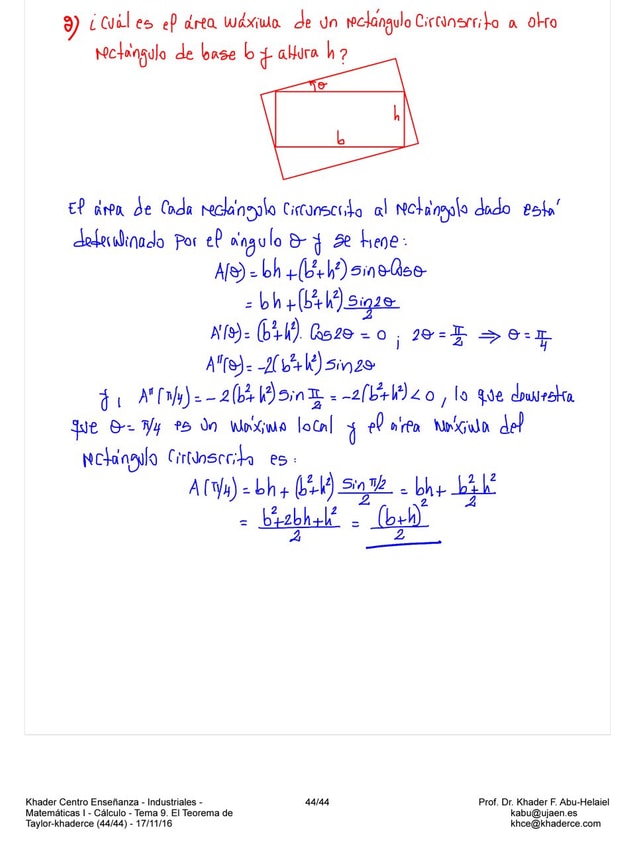 2) ¿Cuál es el área máxima de un rectángulo circunscrito a otro
rectángulo de base b y altura h?
θ
h
b
El área de cada rectángulo circunscrito al rectángulo dado está
determinado por el ángulo θ y se tiene:
A(θ) = bh + (b²+h²) sinθ cosθ
= bh + (b²+h²) sin2θ/2
A'(θ) = (b²+h²). cos2θ = 0 ; 2θ = π/2 ⇒ θ = π/4
A''(θ) = -2(b²+h²) sin2θ
y, A''(π/4) = -2(b²+h²) sin π/2 = -2(b²+h²) < 0, lo que demuestra
que θ = π/4 es un máximo local y el área máxima del
rectángulo circunscrito es:
A(π/4) = bh + (b²+h²) sin π/2 / 2 = bh + b²+h²/2
= b²+2bh+h²/2 = (b+h)²/2
Khader Centro Enseñanza - Industriales -
Matemáticas I - Cálculo - Tema 9. El Teorema de
Taylor-khaderce (44/44) - 17/11/16
44/44
Prof. Dr. Khader F. Abu-Helaiel
kabu@ujaen.es
khce@khaderce.com